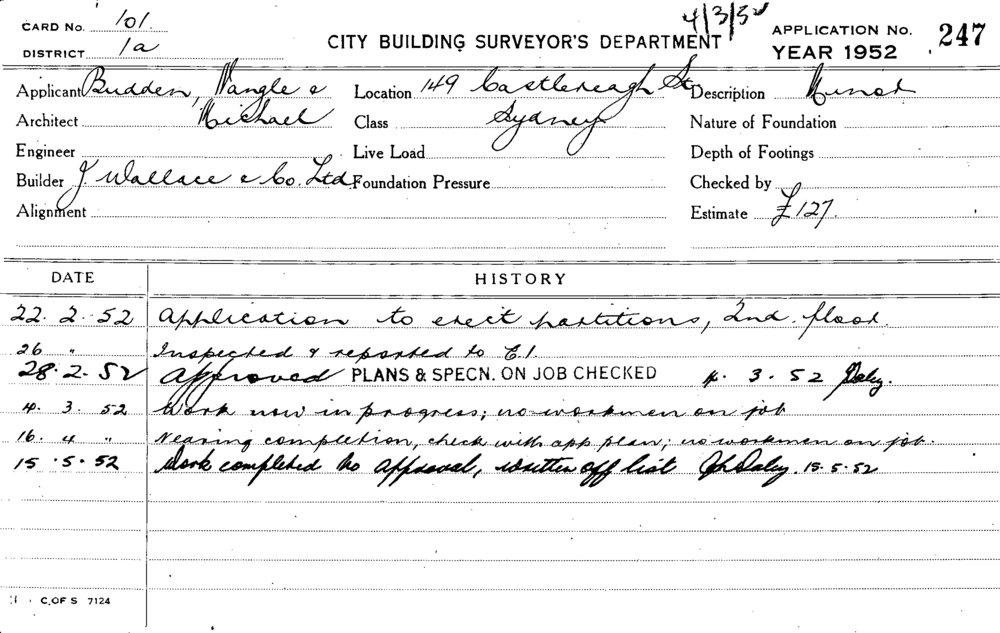 CARD No. 101.
4/3/52
APPLICATION No. 247
DISTRICT 1a
CITY BUILDING SURVEYOR'S DEPARTMENT
YEAR 1952
Applicant Budden, Nangle &
Location 149 Castlereagh St
Description Minor
Architect Michael
Class Sydney
Nature of Foundation
Engineer
Live Load
Depth of Footings
Builder J. Wallace & Co. Ltd
Foundation Pressure
Checked by
Alignment
Estimate £127.
DATE HISTORY
22. 2. 52 Application to erect partitions, 2nd. floor.
26 " Inspected & reported to C.I.
28. 2. 52 Approved PLANS & SPECN. ON JOB CHECKED 4. 3. 52 Daley.
4. 3. 52 Work now in progress; no workmen on job
16. 4 " Nearing completion, check with app plan; no workmen on job.
15. 5. 52 Work completed to approval, written off list Daley. 15. 5. 52
C. OF S 7124